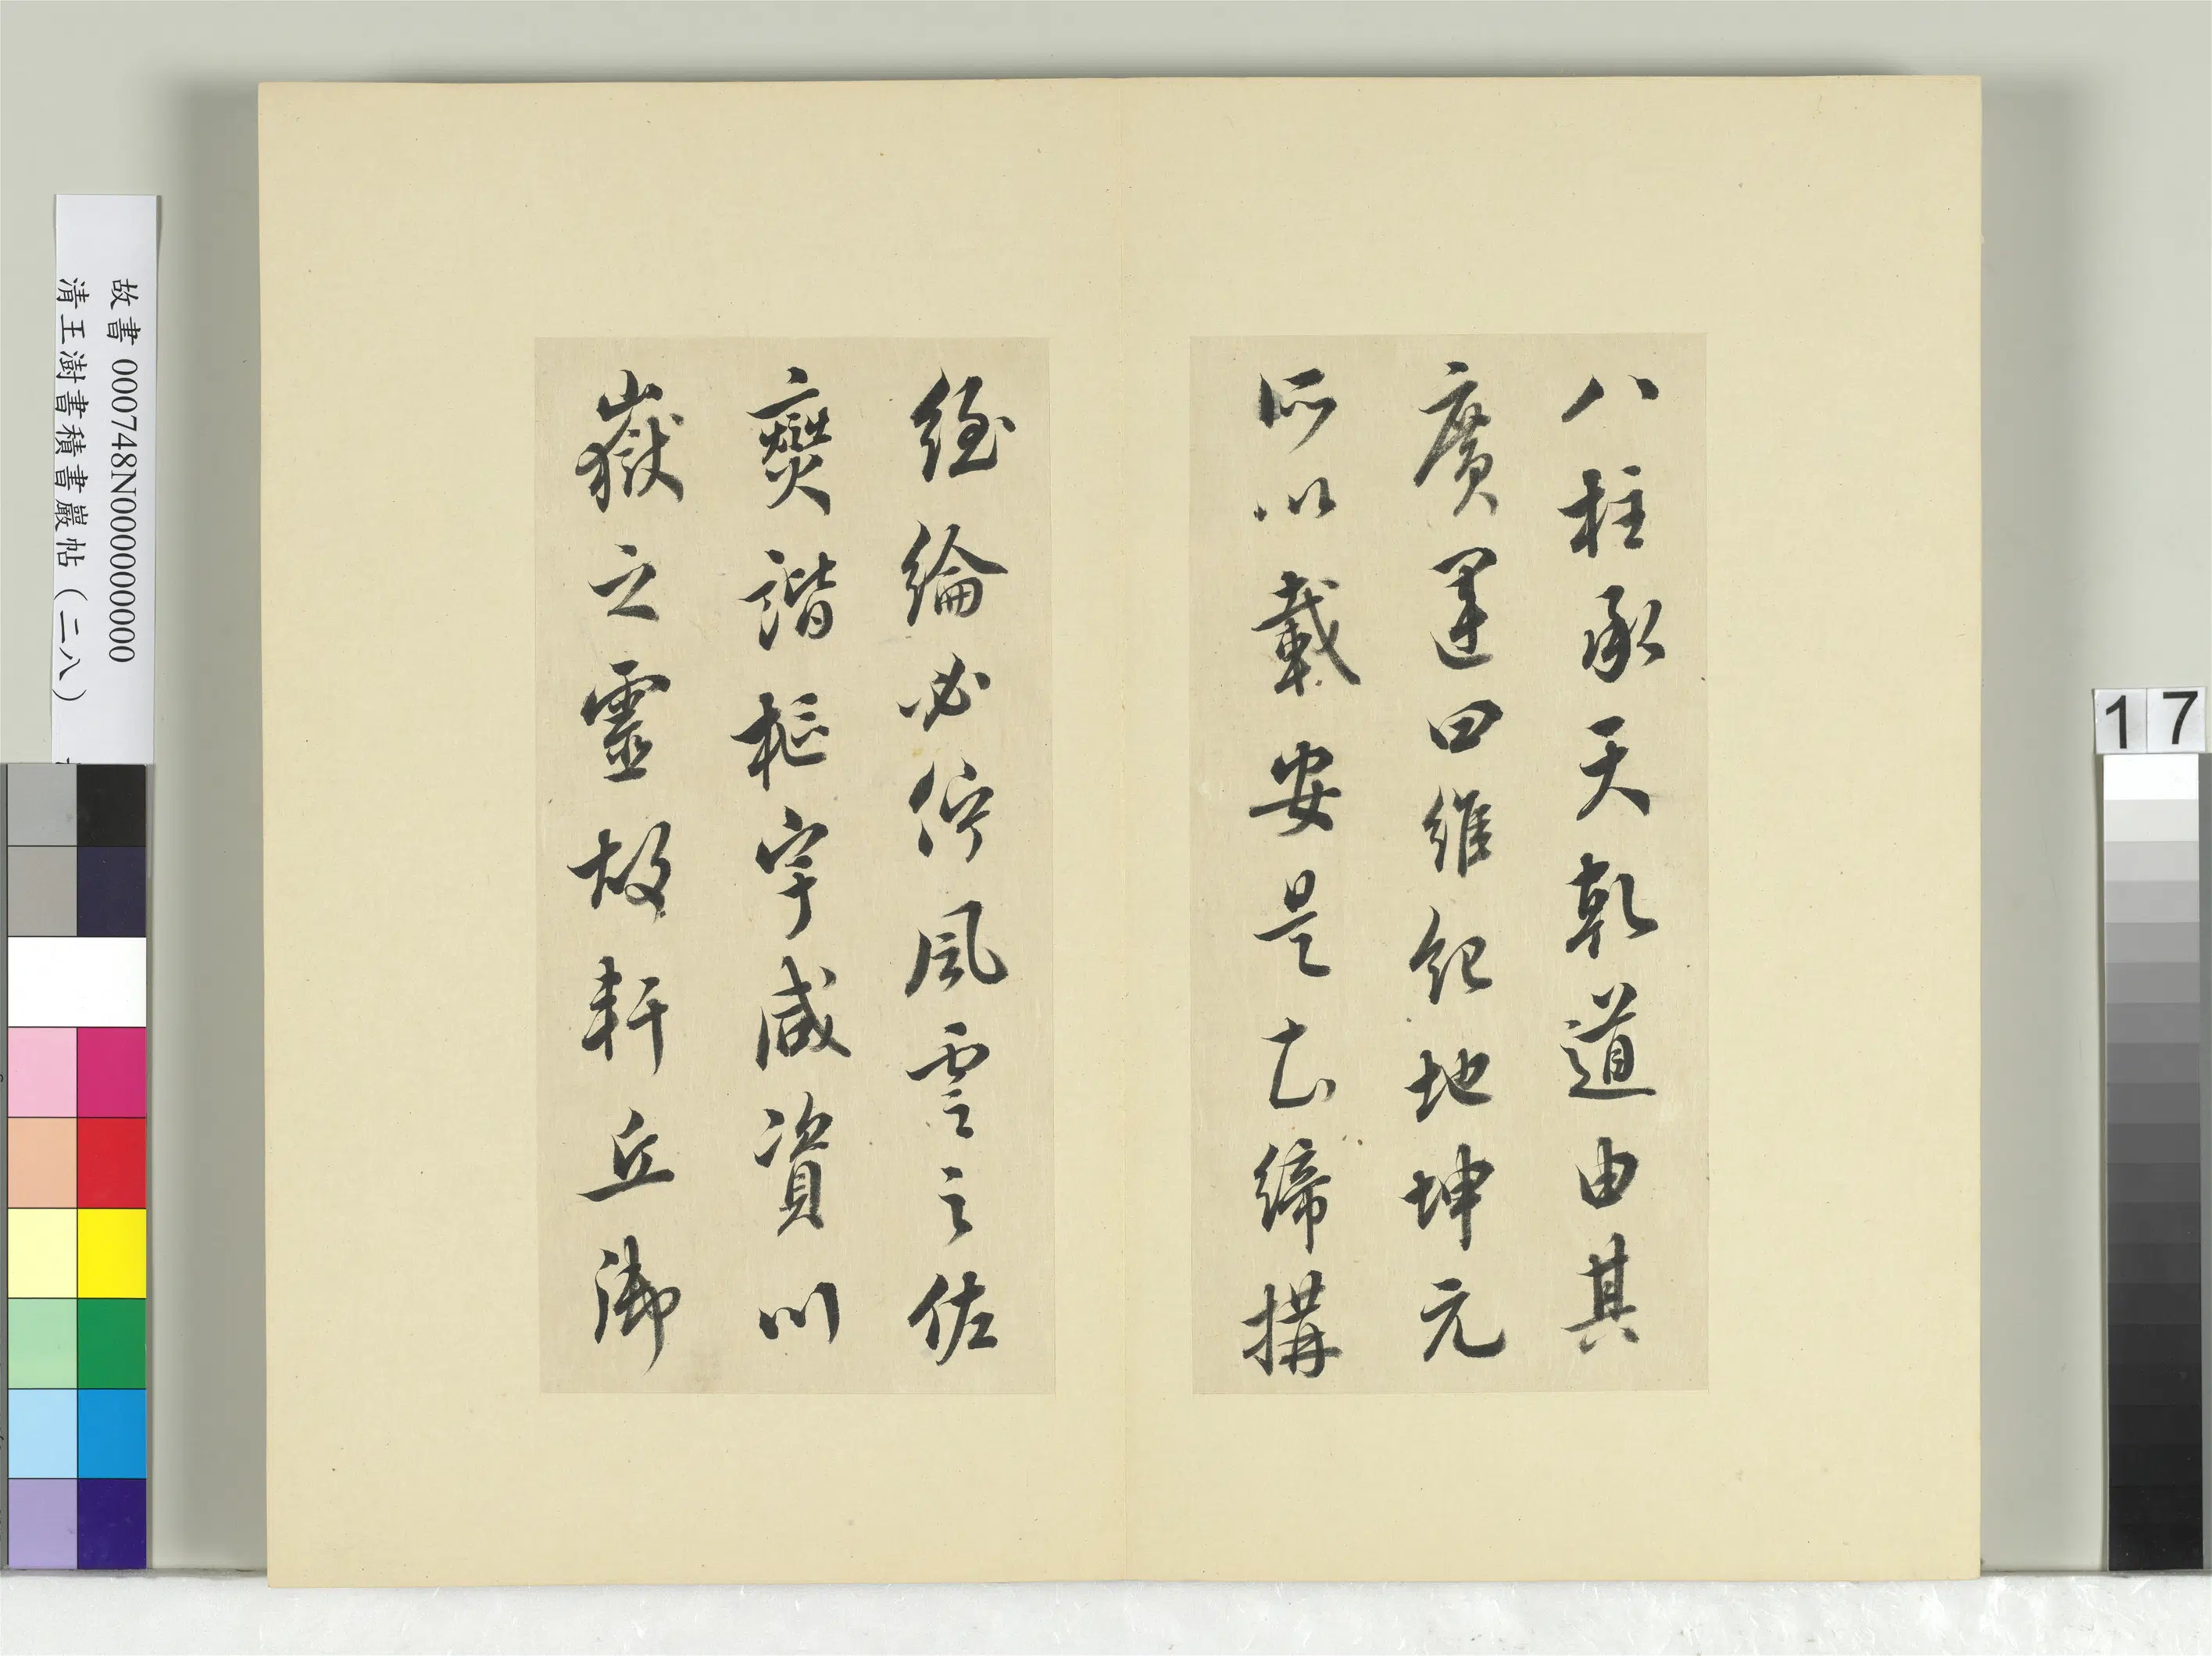 八柱承天乾道由其
廣運四維紀地坤元
所以載安是締搆
經綸必佇風雲之佐
燮諧樞宰咸資川
嶽之靈故軒丘御
故書 000748N000000000
清王澍書積書巖帖(二八)
17